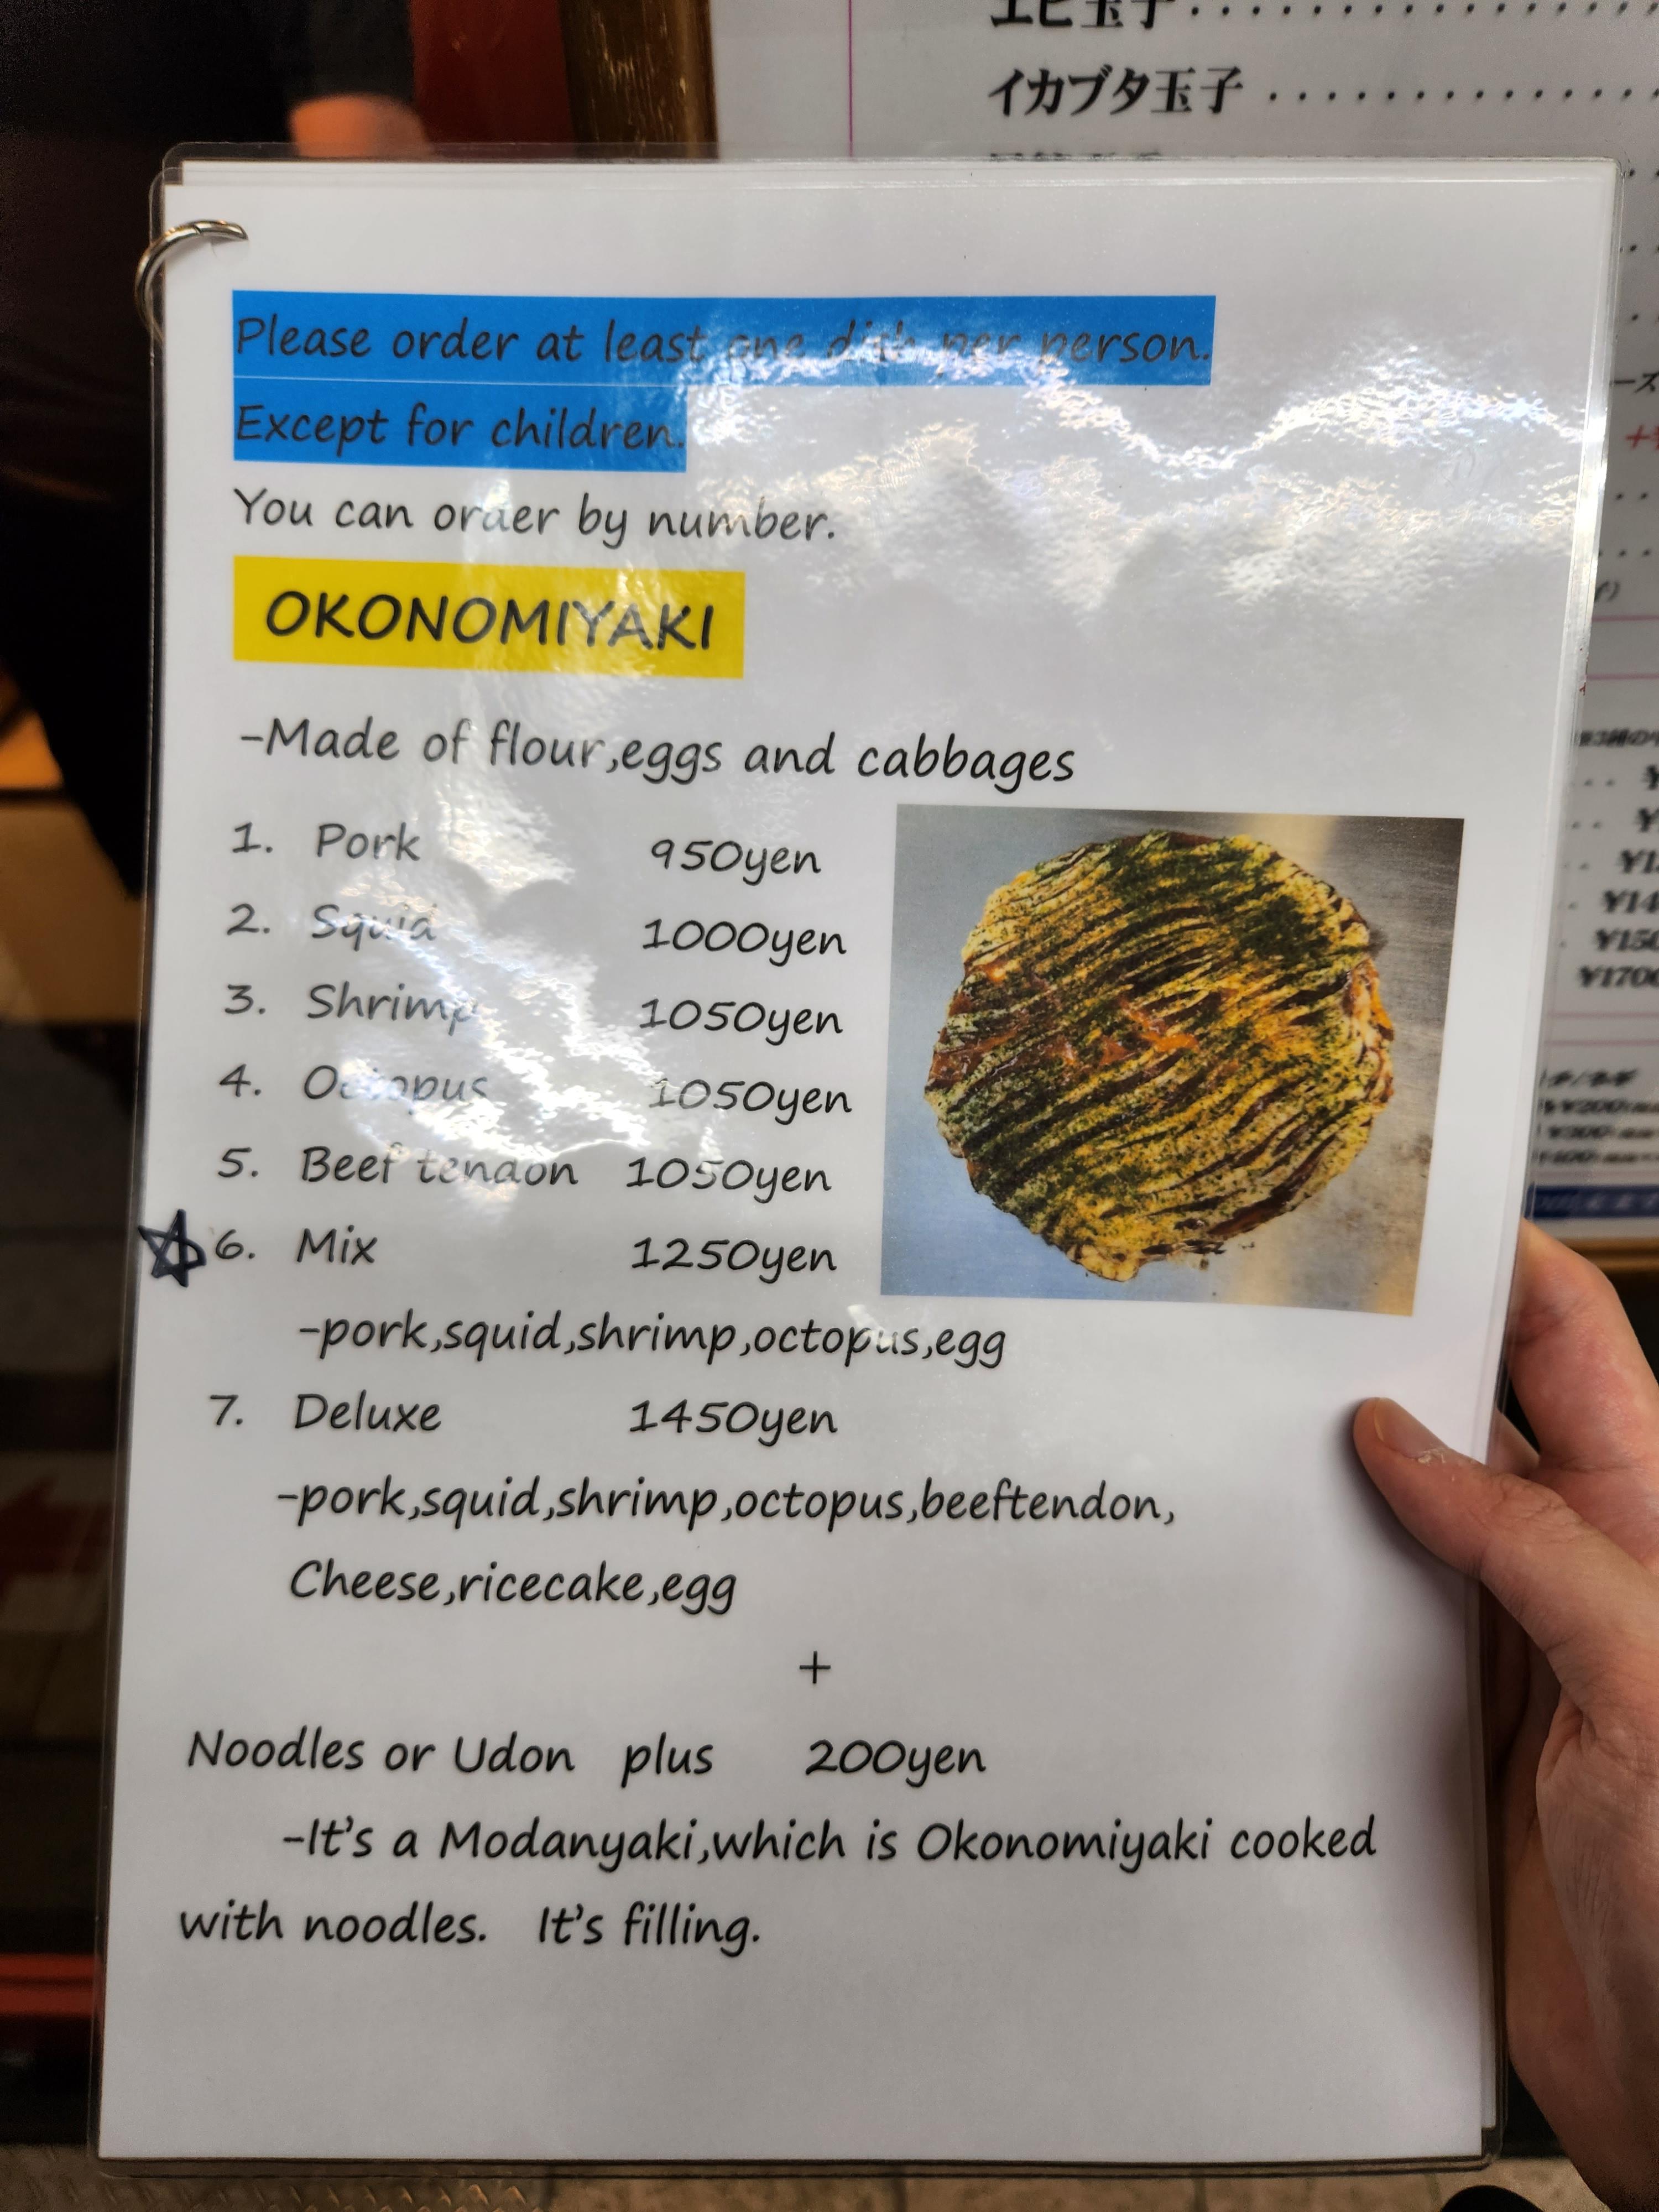 エビ玉子・・・・・・・・・・・・
イカブタ玉子・・・・・・・・・・・・
Please order at least one dish per person.
Except for children.
You can order by number.
OKONOMIYAKI
-Made of flour,eggs and cabbages
1. Pork 950yen
2. Squid 1000yen
3. Shrimp 1050yen
4. Octopus 1050yen
5. Beef tendon 1050yen
6. Mix 1250yen
-pork,squid,shrimp,octopus,egg
7. Deluxe 1450yen
-pork,squid,shrimp,octopus,beeftendon,
Cheese,ricecake,egg
+
Noodles or Udon plus 200yen
-It's a Modanyaki,which is Okonomiyaki cooked
with noodles. It's filling.
¥1700